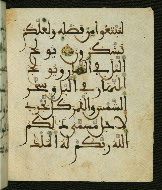 لتبتغوا من فضله ولعلكم
تشكرون يولج
اليل في النهار ويولج
النهار في اليل وسخر
الشمس والقمر كل يجري
لأجل مسمى ذلكم
الله ربكم له الملك